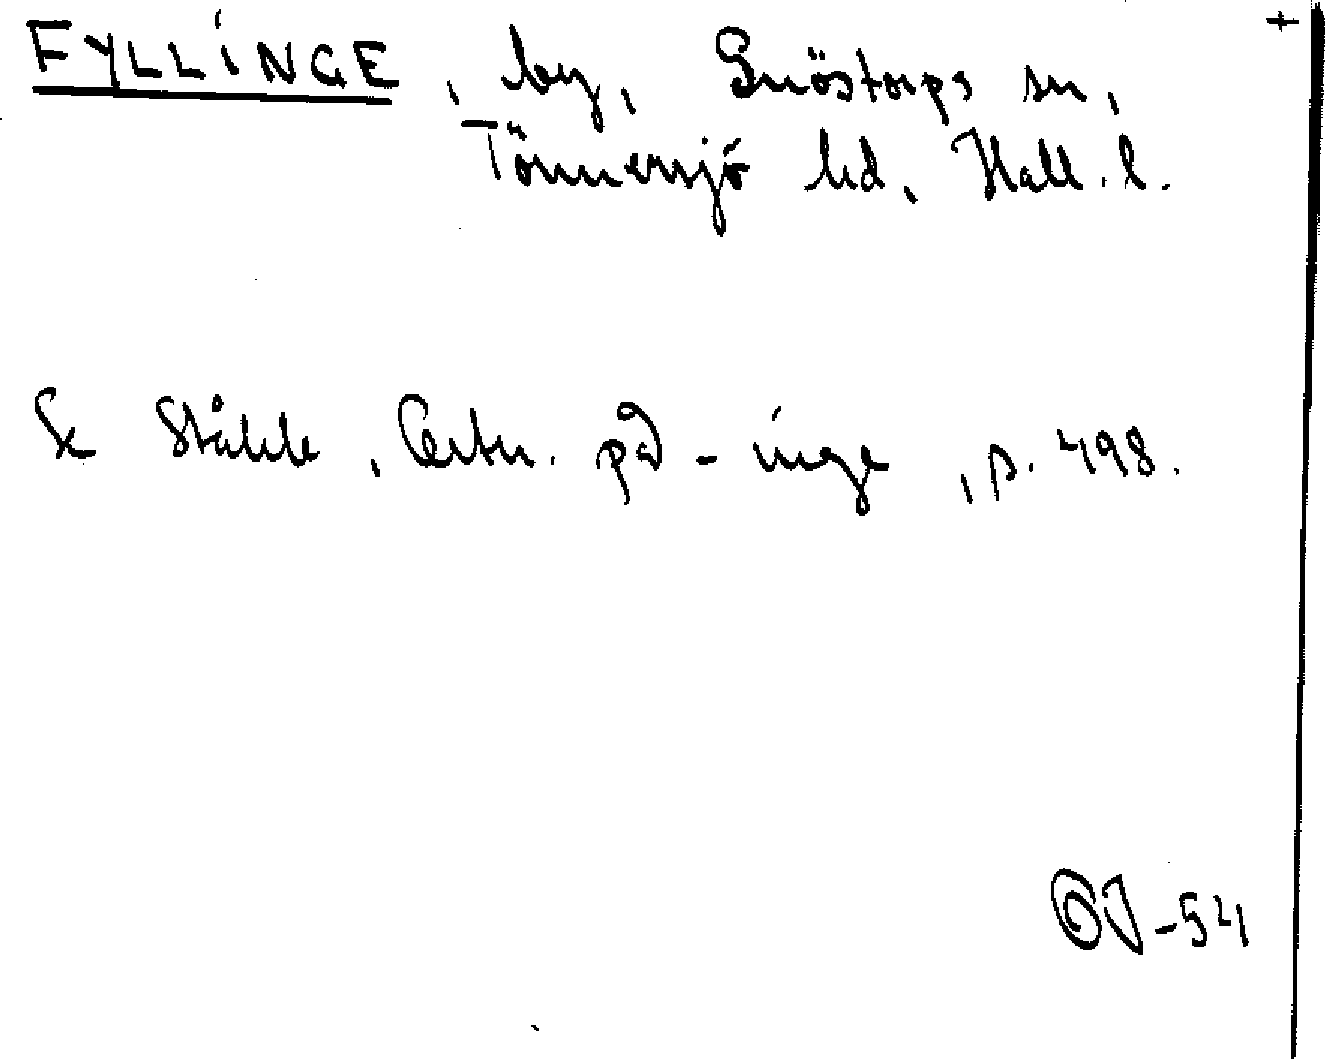 +
FYLLINGE, by, Snöstorps sn,
Tönnersjö hd, Hall. l.
Se Ståhle, Ortn. på -inge, s. 498.
OJ-54